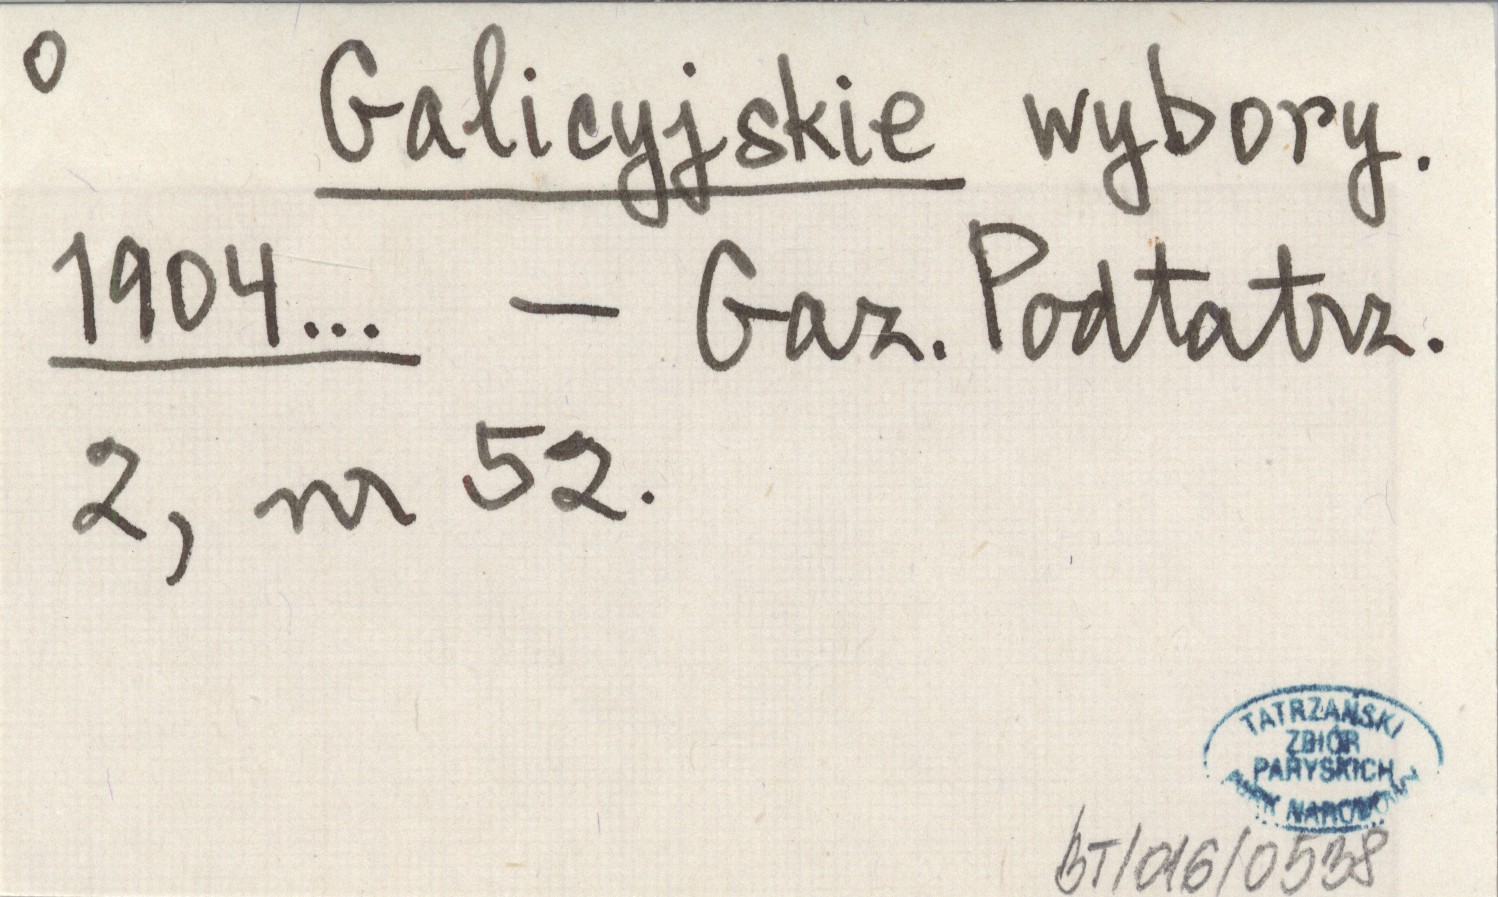 o Galicyjskie wybory.
1904... — Gaz. Podtatrz.
2, nr 52.
TATRZAŃSKI
ZBIÓR
PARYSKICH
PARK NARODOWY
BT/016/0538